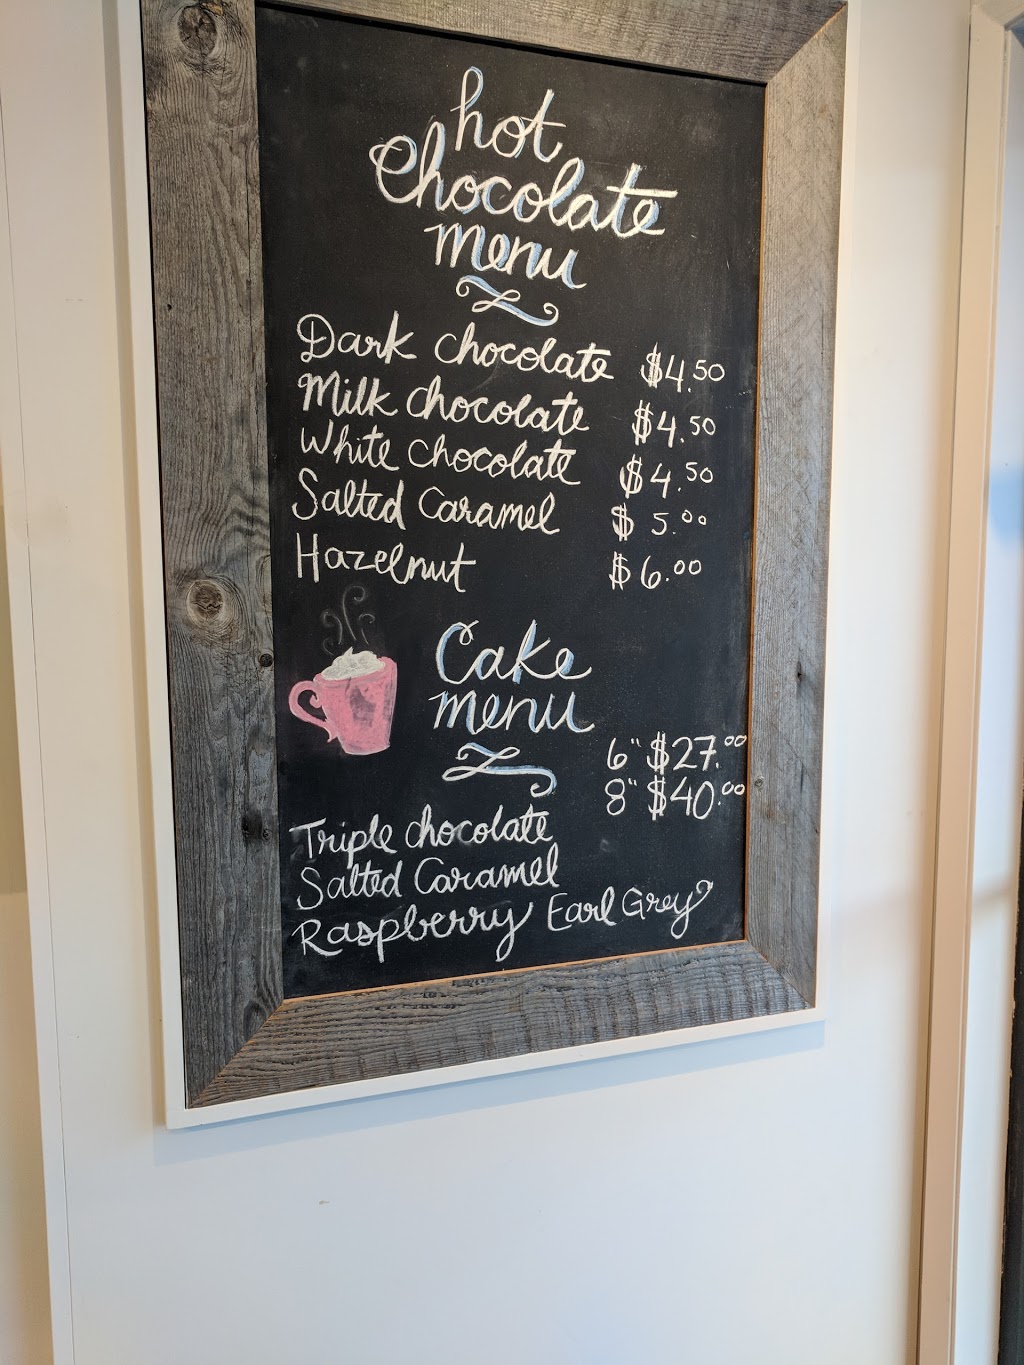 hot
Chocolate
menu
Dark chocolate $4.50
Milk chocolate $4.50
White chocolate $4.50
Salted Caramel $5.00
Hazelnut $6.00
Cake
menu
6" $27.00
8" $40.00
Triple chocolate
Salted Caramel
Raspberry Earl Grey